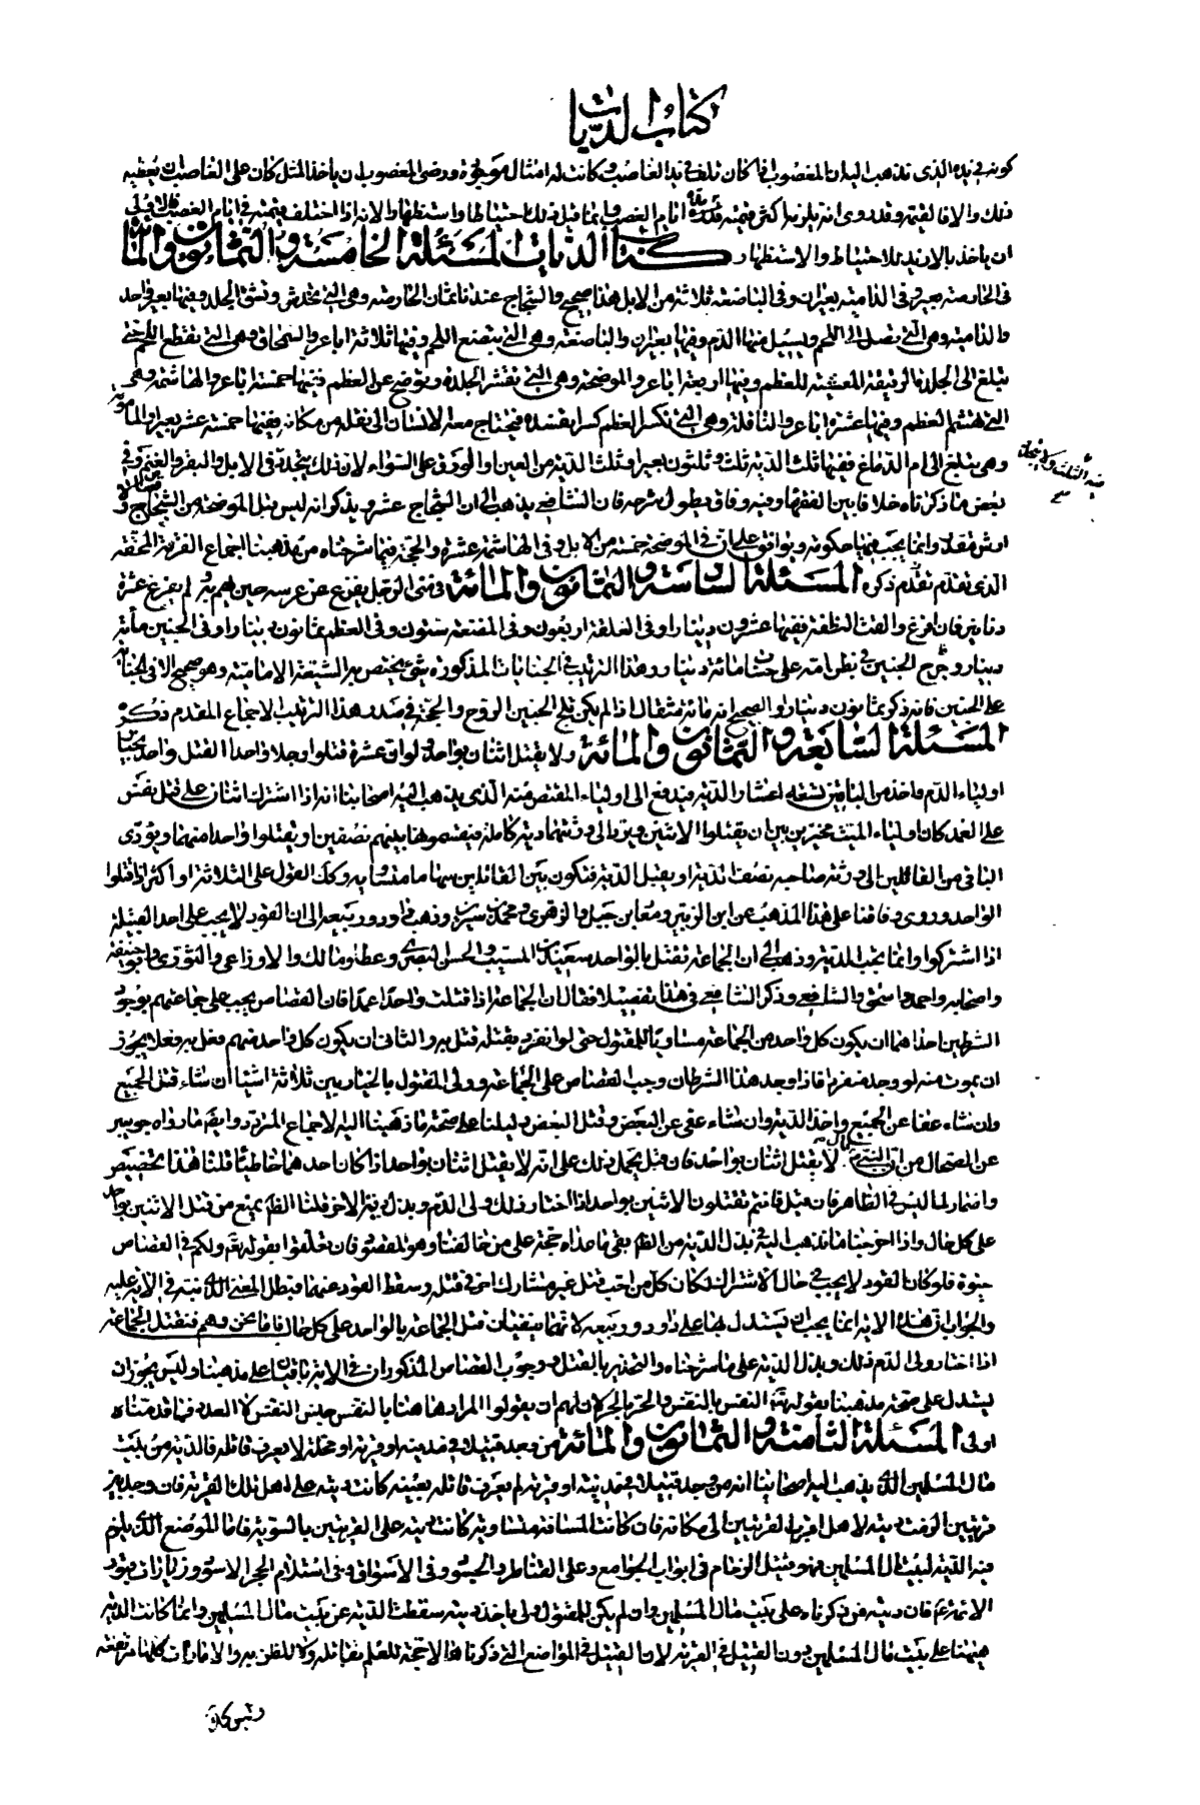 كتاب الديات
كونه في يده الذي نذهب اليه ان المغصوب اذا كان تلف في يد الغاصب وكانت له امثال موجودة ورضى المغصوب ان ياخذ المثل كان على الغاصب ان يعطيه
ذلك والا فالقيمة وقد روى انه يلزمه اكثر قيمته مدة ايام الغصب وانما قيل ذلك احتياطا واستظهارا لانه اذا اختلف قيمته في ايام الغصب فالاولى
ان ياخذ بالازيد للاحتياط والاستظهار كتاب الديات المسئلة الخامسة والثمانون والمائة
في الخارصة بعير وفي الدامية بعيران وفي الباضعة ثلاثة من الابل هذا صحيح والشجاج عندنا ثمان الخارصة وهي التي تخدش وتشق الجلد وفيها بعير واحد
والدامية وهي التي تصل الى اللحم ويسيل منها الدم وفيها بعيران والباضعة وهي التي تبضع اللحم وفيها ثلاثة اباعر والسمحاق وهي التي تقطع اللحم حتى
تبلغ الى الجلدة الرقيقة المغشية للعظم وفيها اربعة اباعر والموضحة وهي التي تقشر الجلدة وتوضح عن العظم وفيها خمسة اباعر والهاشمة وهي
التي تهشم العظم وفيها عشرة اباعر والناقلة وهي التي تكسر العظم كسرا يفسده فيحتاج معه الانسان الى نقله من مكانه وفيها خمسة عشر بعيرا والمامومة
وهي تبلغ الى ام الدماغ ففيها ثلث الدية ثلث وثلثون بعيرا وثلث الدية من العين والورق على السواء لان ذلك يتحدد في الابل والبقر والغنم وفي
فيه الثلث
بعض ما ذكرناه خلاف بين الفقهاء وفيه وفاق يطول شرحه فان الشافعي يذهب الى ان الشجاج عشر ويذكر انه ليس قبل الموضحة من الشجاج
ارش مقدر وانما يجب فيها حكومة ويوافق على ان في الموضحة خمسة من الابل وفي الهاشمة عشرة والحجة فيما شرحناه من مذهبنا اجماع الفرقة المحقة
الذي تقدم ذكره المسئلة السادسة والثمانون والمائة في منى الرجل يفزع عن عرسه حين لم يفرغ عشرة
دنانير فان افرغ والقت النطفة ففيها عشرون دينارا وفي العلقة اربعون وفي المضغة ستون وفي العظم ثمانون دينارا وفي الجنين مائة
دينار وهذا الترتيب في الجنايات المذكورة شيء يختص به الشيعة الامامية وهو صحيح
على الجنين فانه ذكر ثمانون دينارا والصحيح انه مائة مثقال اذا لم يكن تلج الجنين الروح والحجة في صدر هذا الترتيب الاجماع المقدم ذكره
المسئلة السابعة والثمانون والمائة ولا يقتل اثنان بواحد ولو ان عشرة قتلوا رجلا واحدا القتل واحد
اولياء الدم واخذ من الباقين تسعة اعشار الدية فيدفع الى اولياء المقتص منه الذي يذهب اليه اصحابنا انه اذا اشترك اثنان على قتل نفس
على العمد كان اولياء الميت مخيرين بين ان يقتلوا الاثنين ويردوا الى ورثتهما دية كاملة فيقسموها بينهم نصفين او يقتلوا واحدا منهما ويؤدى
الباقي من القاتلين الى ورثة صاحبه نصف الدية او يقبل الدية فتكون بين القاتلين سهاما متساوية وكذا القول على الثلاثة او اكثر اذا قتلوا
الواحد وروى وفاقنا على هذا المذهب عن ابن الزبير ومعاذ بن جبل والزهري ومحمد بن سيرين وذهب داود وربيعة الى ان القود لا يجب على احد القتلة
اذا اشتركوا وانما يجب الدية وذهب الى ان الجماعة تقتل بالواحد سعيد بن المسيب والحسن البصري وعطا ومالك والاوزاعي والثوري وابو حنيفة
واصحابه واحمد واسحق والشافعي وذكر الشافعي في هذا تفصيلا فقال ان الجماعة اذا قتلت واحدا عمدا فان القصاص يجب على جماعتهم بوجود
الشرطين احداهما ان يكون كل واحد من الجماعة مساويا للمقتول حتى لو انفرد بقتله قتل به والثاني ان يكون كل واحد منهم فعل به فعلا يجوز
ان يموت منه لو وجد منفردا فاذا وجد هذا الشرطان وجب القصاص على الجماعة وولى المقتول بالخيار بين ثلاثة اشياء ان شاء قتل الجميع
وان شاء عفا عن الجميع واخذ الدية وان شاء عفى عن البعض وقتل البعض دليلنا على صحة ما ذهبنا اليه الاجماع المتردد وايضا ما رواه جويبر
عن الضحاك من ان النبي قال لا يقتل اثنان بواحد فان قيل يحمل ذلك على انه لا يقتل اثنان بواحد اذا كان احدهما خاطئا قلنا هذا تخصيص
واضمار لما ليس في الظاهر فان قيل فانتم تقتلون الاثنين بواحد اذا اختار ذلك ولى الدم وبذل دية الاخر قلنا الظاهر يمنع من قتل الاثنين بواحد
على كل حال واذا اخرجنا ما نذهب اليه في بذل الدية من الظاهر بقى ما عداه حجة على من خالفنا وهو المقصود فان تعلقوا بقوله تعالى ولكم في القصاص
حيوة فلو كان القود لا يجب في حال الاشتراك لكان كل من احب قتل غيره شارك اخر في قتله وسقط القود عنهما فبطل المعنى الذي نبه في الاية عليه
والجواب ان هذه الاية انما يجب ان يستدل بها على داود وربيعة لانهما ينفيان قتل الجماعة بالواحد على كل حال فاما نحن وهم فنقتل الجماعة
اذا اختار ولى الدم ذلك وبذل الدية على ما شرحناه والتحذير بالقتل ووجوب القصاص المذكوران في الاية ثابتان على مذهبنا وليس يجوز ان
يستدل على صحة مذهبنا بقوله تعالى النفس بالنفس والحر بالحر لان لهم ان يقولوا المراد هاهنا بالنفس جنس النفس لا العدد فما قدمناه
اولى المسئلة الثامنة والثمانون والمائة من وجد قتيلا في مدينة او قرية او محلة لا يعرف قاتله فالدية من بيت
مال المسلمين الذي يذهب اليه اصحابنا انه من وجد قتيلا بمدينة او قرية لم يعرف قاتله بعينه كانت ديته على اهل تلك القرية فان وجد بين
قريتين الزمت ديته لاهل اقرب القريتين الى مكانه فان كانت المسافة متساوية كانت ديته على القريتين بالسوية فاما الموضع الذي يلزم
فيه الدية لبيت مال المسلمين فهو قتيل الزحام في ابواب الجوامع وعلى القناطر والجسور وفي الاسواق وفي استلام الحجر الاسود وزيارات قبور
الائمة ع فان ديته من ذكرناه على بيت مال المسلمين وان لم يكن للمقتول ولى ياخذ ديته سقطت الدية عن بيت مال المسلمين وانما كانت الدية
هيهنا على بيت مال المسلمين دون القتيل في القرية لان القتيل في المواضع التي ذكرناها لا جهة للعلم بقاتله ولا للظن به والامارات كلها مرتفعة
وليس كذلك